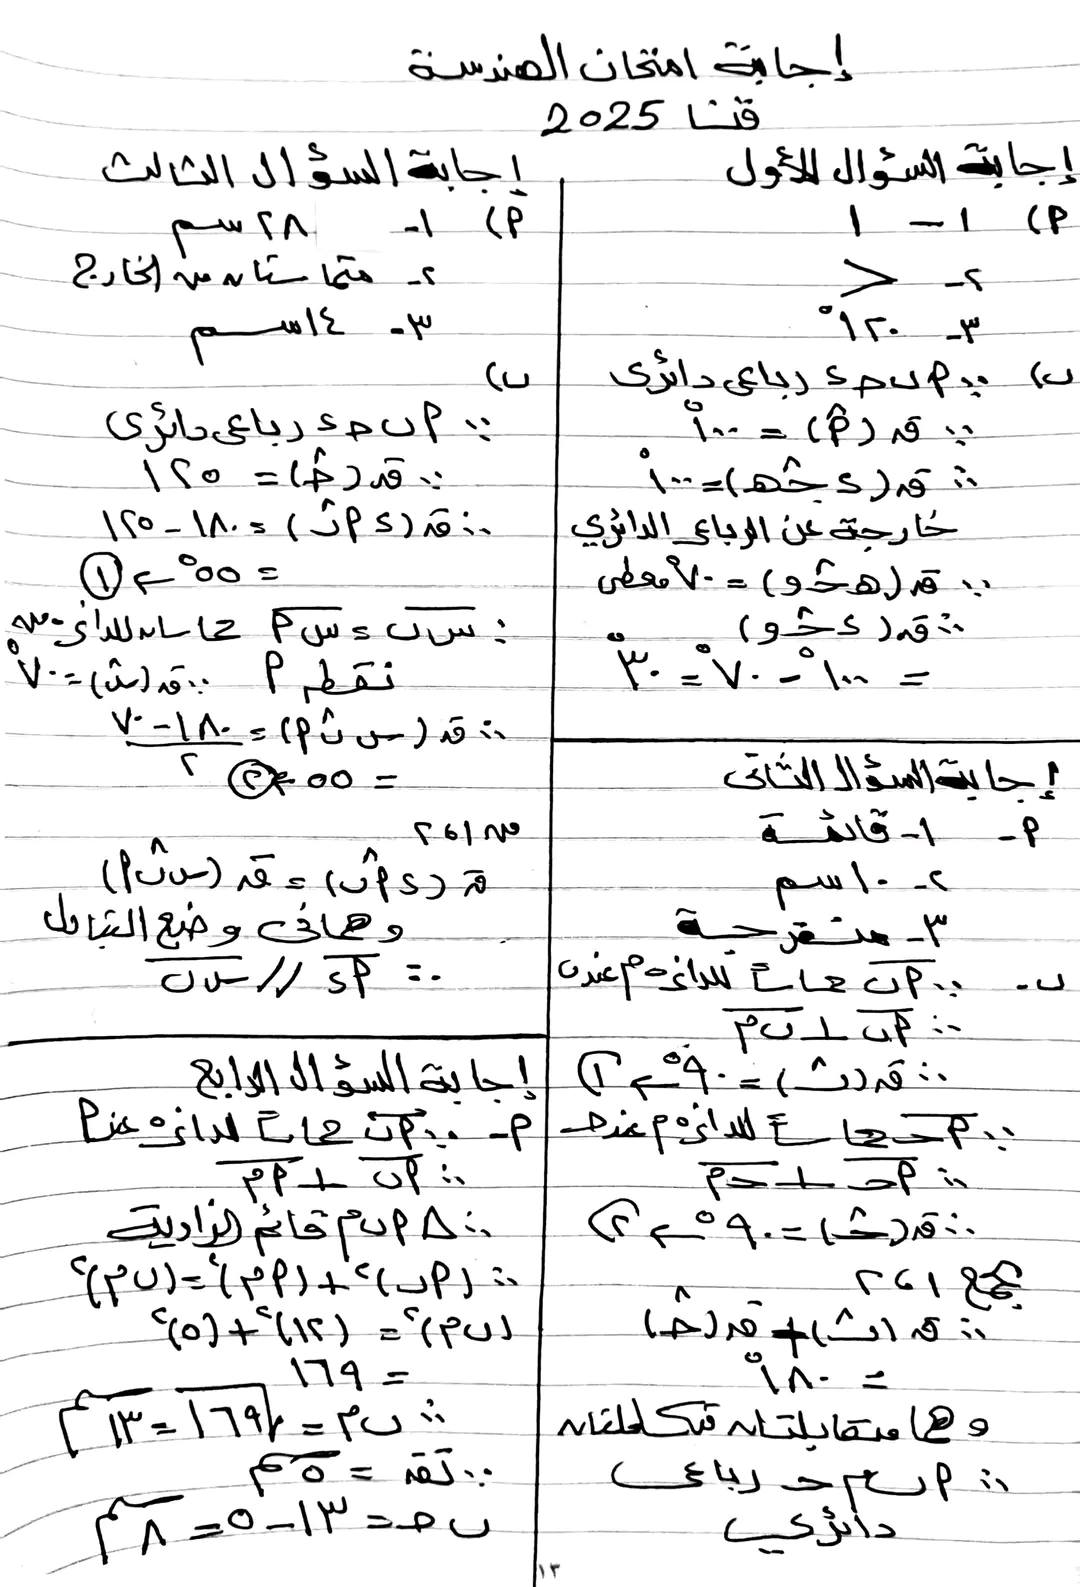 إجابة امتحان الهندسة
قنا 2025
إجابة السؤال الأول
أ) ١ - ١
٢- >
٣- ١٢٠°
ب) ∵ أ ب ج د رباعى دائرى
∵ قد (أ̂) = ١٠٠°
∴ قد (د ج̂ هـ) = ١٠٠°
خارجة عن الرباعى الدائري
∵ قد (هـ ج̂ و) = ٧٠° معطى
∴ قد (د ج̂ و)
= ١٠٠° - ٧٠° = ٣٠°
إجابة السؤال الثانى
أ- ١- قائمة
٢- ١٠ سم
٣- منفرجة
ب- ∵ أب مماسة للدائرة م عند ب
∴ أب ⊥ ب م
∴ قد (ب̂) = ٩٠° ← ١
∵ أج مماسة للدائرة م عند ج
∴ أج ⊥ ج م
∴ قد (ج̂) = ٩٠° ← ٢
بجمع ١، ٢
∴ قد (ب̂) + قد (ج̂)
= ١٨٠°
وهما متقابلتان متكاملتان
∴ أ ب م ج رباعى
دائري
إجابة السؤال الثالث
أ) ١- ٢٨ سم
٢- متماستان من الخارج
٣- ١٤ سم
ب)
∵ أ ب ج د رباعى دائرى
∵ قد (ج̂) = ١٢٥
∴ قد (د أ̂ ب) = ١٨٠ - ١٢٥
= ٥٥° ← ١
∵ س ب، س أ مماسان للدائرة من
نقطة أ ∵ قد (س̂) = ٧٠°
∴ قد (س ب̂ أ) = ١٨٠ - ٧٠ / ٢
= ٥٥ ← ٢
من ١، ٢
قد (د أ̂ ب) = قد (س ب̂ أ)
وهما فى وضع التبادل
∴ أد // س ب
إجابة السؤال الرابع
أ- ∵ أب مماسة للدائرة عند أ
∴ أب ⊥ أم
∴ Δ أ ب م قائم الزاوية
∴ (أب)٢ + (أم)٢ = (ب م)٢
(ب م)٢ = (١٢)٢ + (٥)٢
= ١٦٩
∴ ب م = √١٦٩ = ١٣ سم
∵ نق = ٥ سم
ب ج = ١٣ - ٥ = ٨ سم
١٣